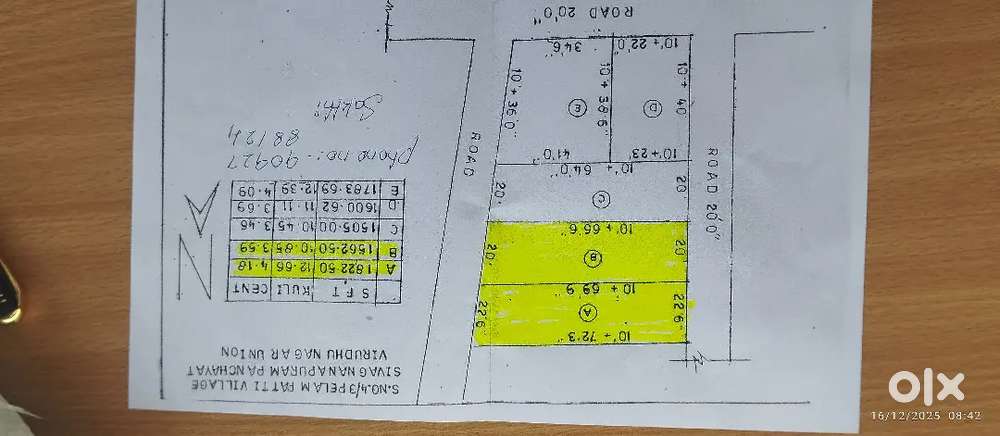 S.NO.4/3 PELAM PATTI VILLAGE
SIVAGNANAPURAM PANCHAYAT
VIRUDHU NAGAR UNION
N
S F T KULI CENT
A 1822.50 12.66 4.18
B 1562.50 10.85 3.59
C 1505.00 10.45 3.46
D 1600.62 11.11 3.69
E 1783.69 12.39 4.09
phone no:- 90927
88124
Sakthi
10'+ 72'3
22'6"
A
22'6"
10'+ 69'9
20'
B
20'
10'+ 66'6"
20'
C
20'
10'+ 64'0"
10'+23'
41'0"
ROAD
ROAD 20'0"
10'+40'
D
10'+38'6"
E
10'+36'0"
10'+22'0"
34'6"
ROAD 20'0"
OLX
16/12/2025 08:42